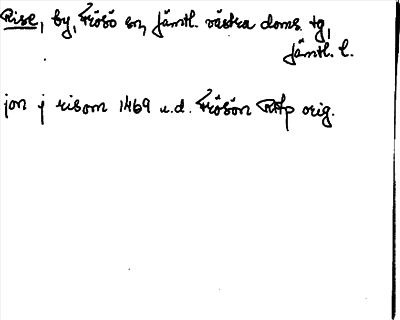 Rise, by, Frösö sn, Jämtl. västra doms. tg,
Jämtl. l.
jon j risom 1469 u.d. Frösön RAp orig.